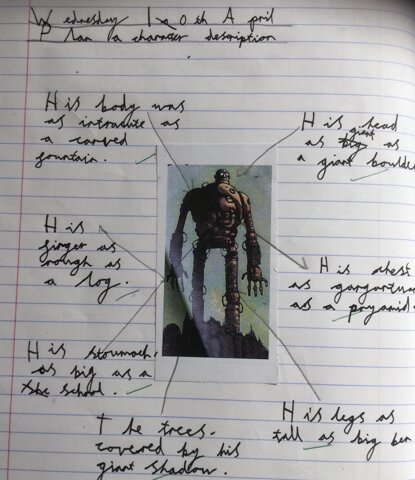 Wednesday 10th April
Plan a character description
His body was
as intracute as
a carved
fountain.
His head
as big giant as
a giant boulder
His
finger as
rough as
a log.
His chest
as gargantuan
as a pryamid.
His stoumach
as big as a
the school.
The trees.
covered by his
giant shadow.
His legs as
tall as big ben